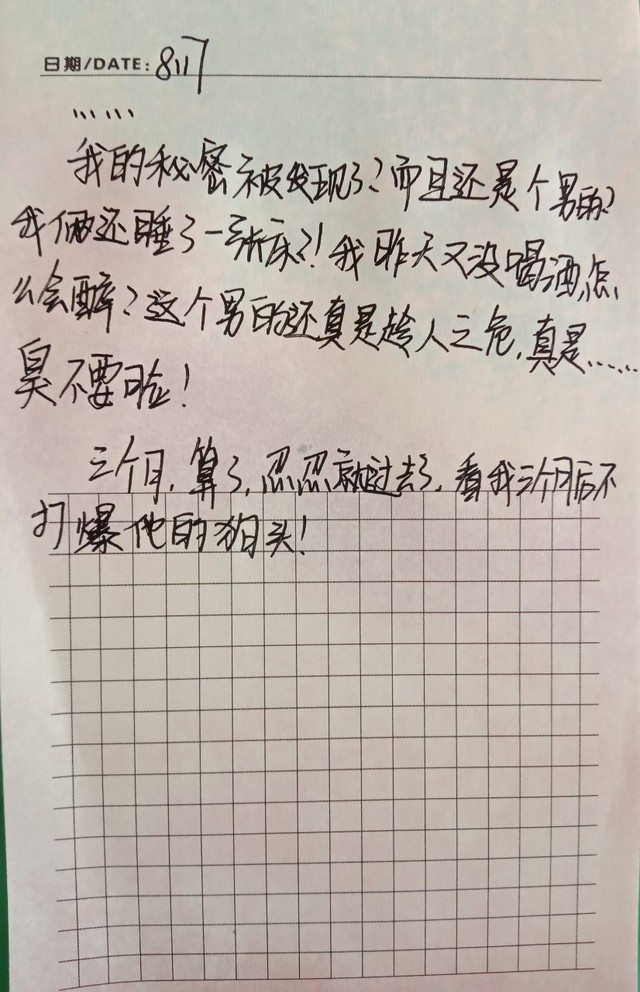 日期/DATE: 8117
......
我的秘密被发现了?而且还是个男的?
我俩还睡了一张床?!我昨天又没喝酒,怎
么会醉?这个男的还真是趁人之危,真是......
臭不要脸!
三个月,算了,忍忍就过去了,看我三个月后不
打爆他的狗头!